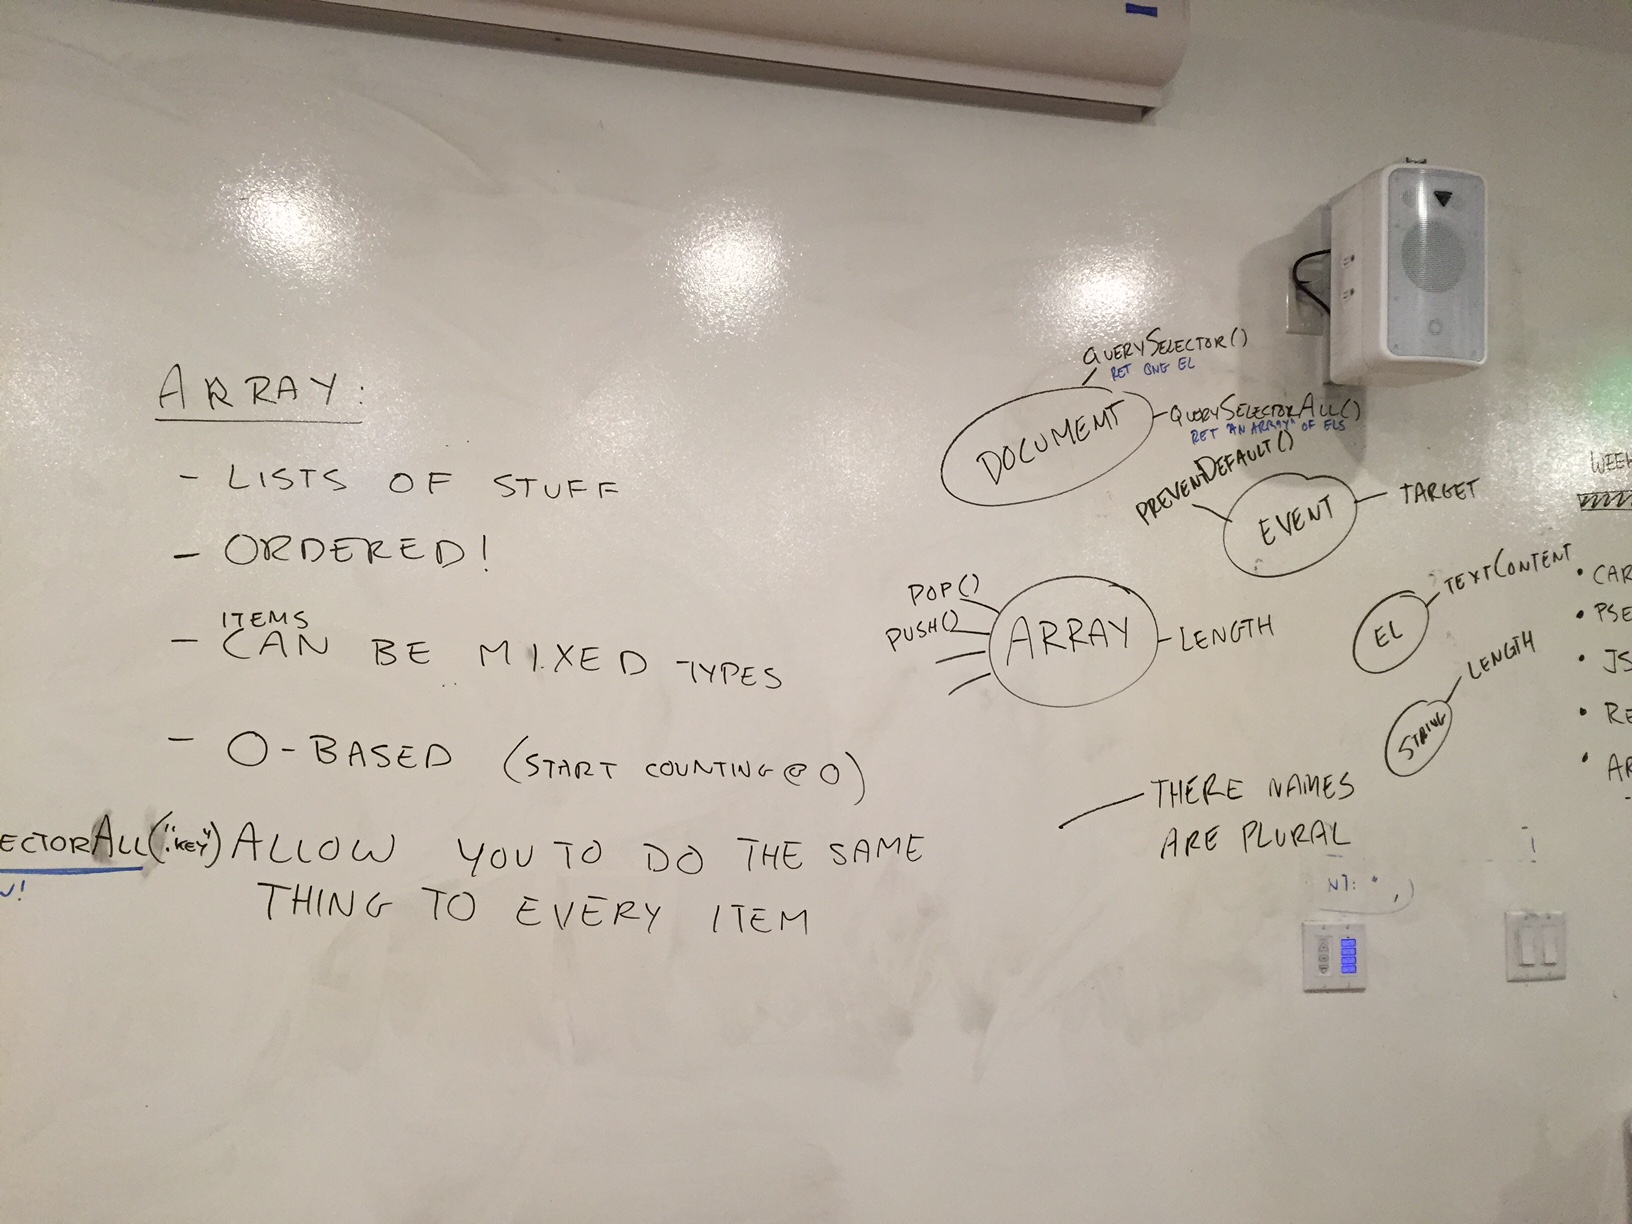 ARRAY:
- LISTS OF STUFF
- ORDERED!
ITEMS
- CAN BE MIXED TYPES
- 0-BASED (START COUNTING @ 0)
ECTORALL(".KEY") ALLOW YOU TO DO THE SAME
THING TO EVERY ITEM
— THERE NAMES
ARE PLURAL
QUERYSELECTOR()
RET ONE EL
DOCUMENT
QUERYSELECTORALL()
RET "AN ARRAY" OF ELS
PREVENTDEFAULT()
EVENT
TARGET
POP()
PUSH()
ARRAY
LENGTH
TEXTCONTENT
EL
LENGTH
STRING
WEEK
• CAR
• PSE
• JS
• RE
• AR